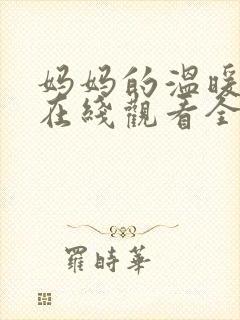 妈妈的温暖
在綫觀看全
羅時華